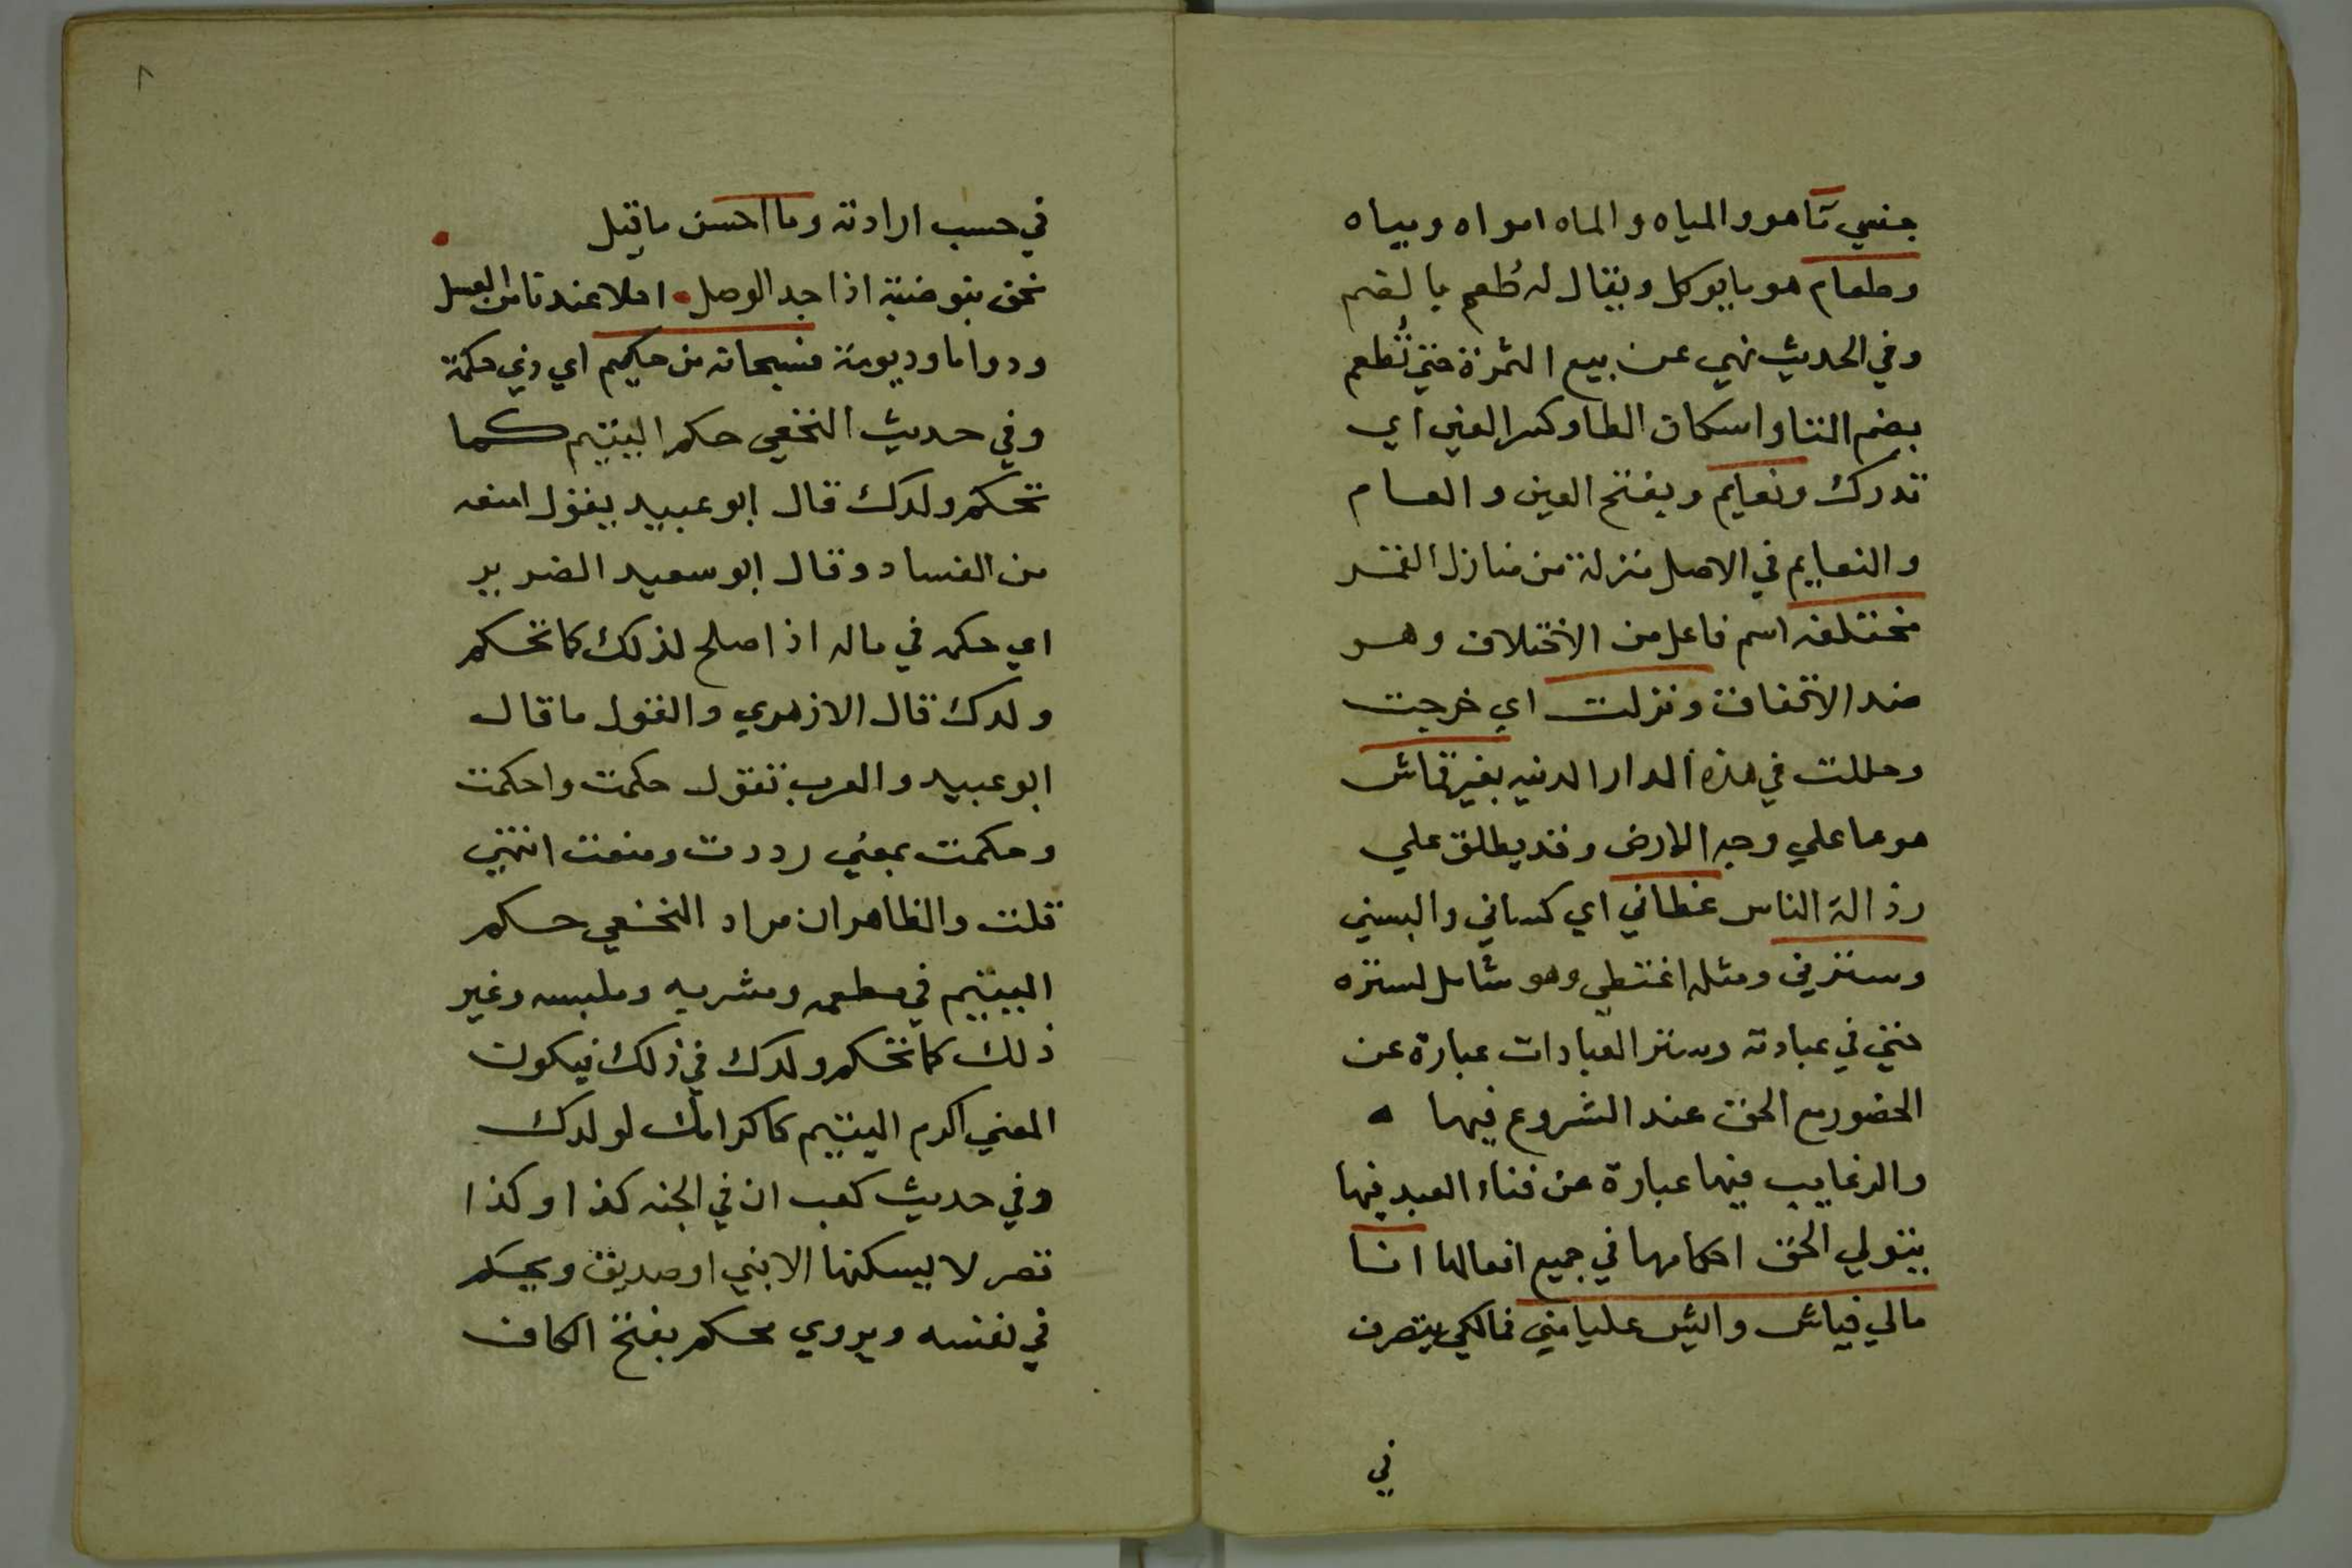 جنسي تا هو والمياه والماه امواه ومياه
وطعام هو ما يوكل ويقال له طُعم بالضم
وفي الحديث نهي عن بيع الثمرة حتي تُطعم
بضم التا واسكان الطا وكسر العين اي
تدرك ونعايم وبفتح العين والعام
والنعايم في الاصل منزلة من منازل القمر
مختلفه اسم فاعل من الاختلاف وهو
ضد الاتفاق ونزلت اي خرجت
وحللت في هذه الدار الدنيه بغير قماش
هو ما علي وجه الارض وقد يطلق علي
رذالة الناس غطاني اي كساني والبسني
وسترني ومثله اغتطي وهو شامل لستره
حتي في عبادته وستر العبادات عبارة عن
الحضور مع الحق عند الشروع فيها ه
والرغايب فيها عبارة عن فناء العبد فيها
يتولي الحق احكامها في جميع افعالها انا
مالي فياش وايش عليا مني فمالكي يتصرف
في
٨
في حسب ارادته وما احسن ما قيل
نحن بتوضية اذا جد الوصل • املا عند تا من العسل
ودواما وديومة فسبحانه من حكيم اي ذي حكمة
وفي حديث النخعي حكم اليتيم كما
تحكم ولدك قال ابو عبيد يقول امنعه
من الفساد وقال ابو سعيد الضرير
اي حكمه في ماله اذا صلح لذلك كما تحكم
ولدك قال الازهري والقول ما قال
ابو عبيد والعرب تقول حكمت واحكمت
وحكمت بمعني رددت ومنعت انتهي
قلت والظاهر ان مراد النخعي حكم
اليتيم في مطعمه ومشربه وملبسه وغير
ذلك كما تحكم ولدك في ذلك فيكون
المعني اكرم اليتيم كاكرامك لولدك
وفي حديث كعب ان في الجنه كذا وكذا
قصر لا يسكنها الا نبي او صديق ومحكم
في نفسه ويروي محكم بفتح الكاف